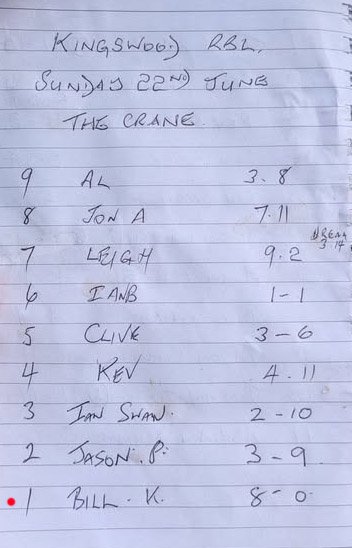 KINGSWOOD RBL.
SUNDAY 22ND JUNE
THE CRANE.
9 AL 3.8
8 JON A 7.11
7 LEIGH 9.2 BREAM 3-14
6 IANB 1-1
5 CLIVE 3-6
4 KEV 4.11
3 IAN SWAN. 2-10
2 JASON.P. 3-9
1 BILL.K. 8-0